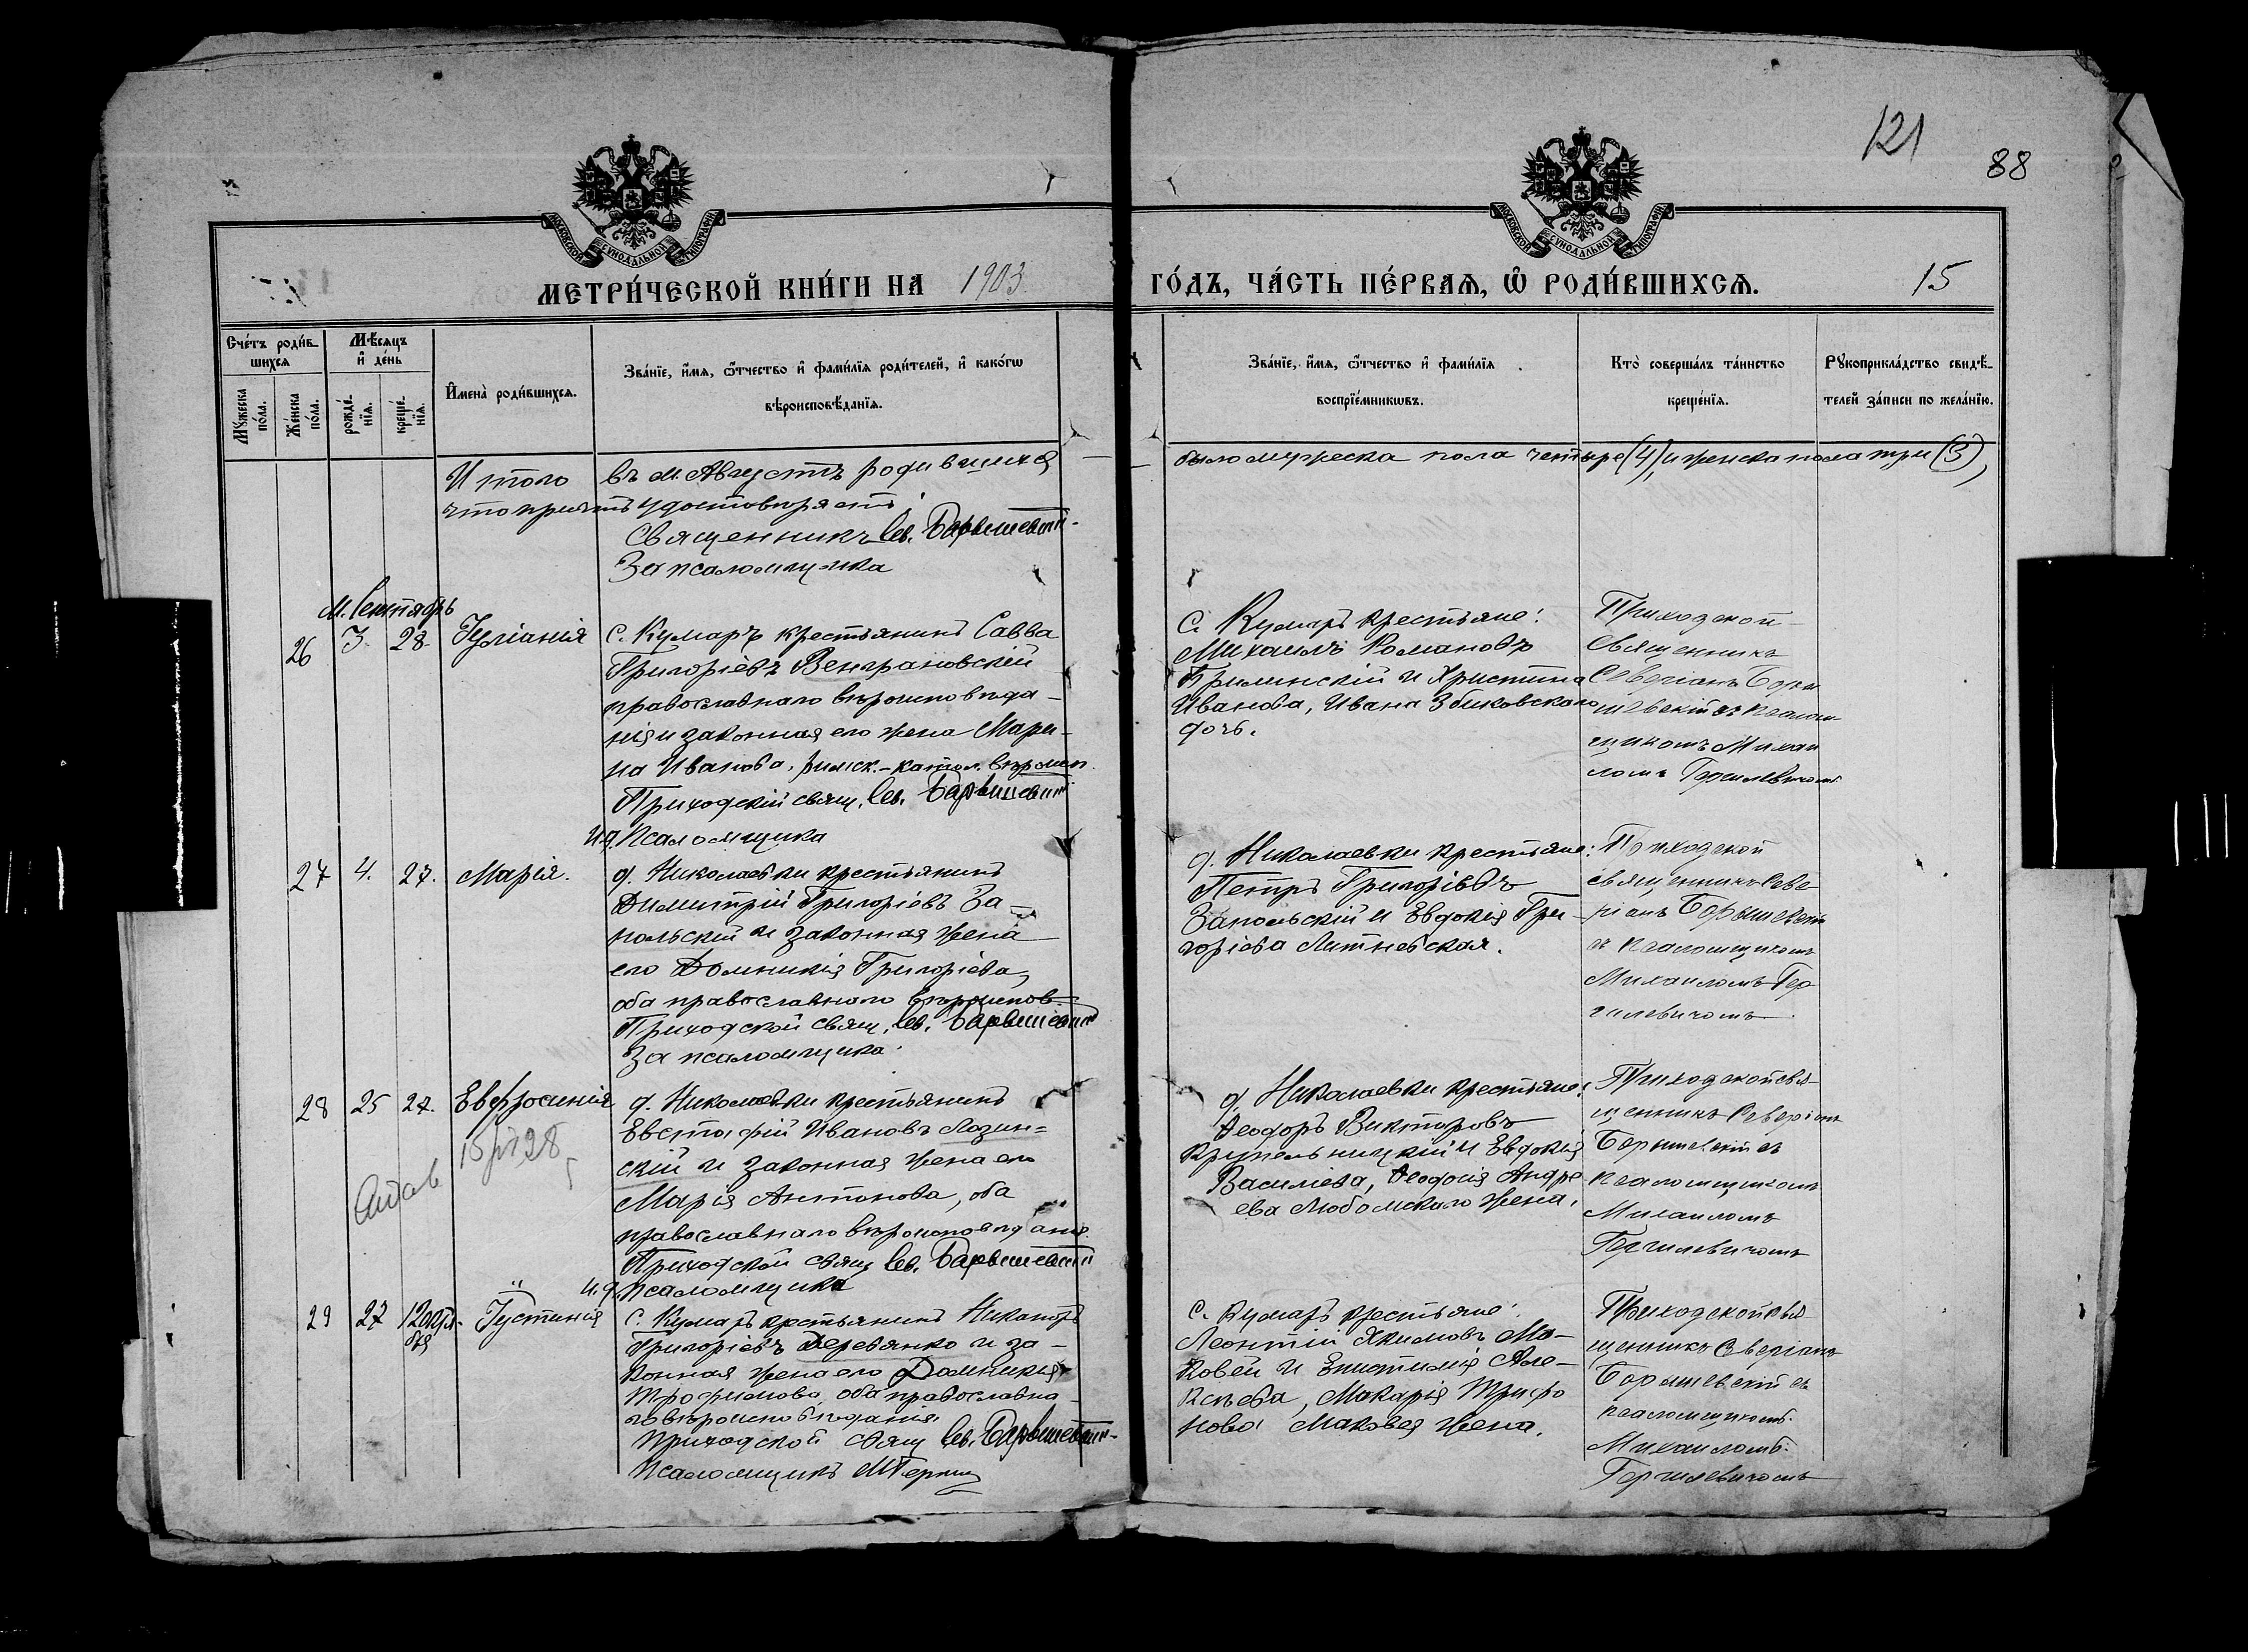 121
88
МОСКОВСКОЙ СѴНОДАЛЬНОЙ ТИПОГРАФІИ
МОСКОВСКОЙ СѴНОДАЛЬНОЙ ТИПОГРАФІИ
МЕТРИ́ЧЕСКОЙ КНИ́ГИ НА 1903 ГО́ДЪ, ЧА́СТЬ ПЕ́РВАЯ, Ѡ҆ РОДИ́ВШИХСЯ. 15
Сче́тъ роди́в-
шихся
Мꙋ́жеска по́ла.
Же́нска по́ла.
Мѣ́сяцъ и҆ де́нь
рожде́-
нїя.
креще́-
нїя.
И҆мена̀ роди́вшихся.
Зва́нїе, и҆́мя, ѻ҆́тчество и҆ фами́лїя роди́телей, и҆ како́гѡ
вѣроисповѣ́данїя.
Зва́нїе, и҆́мя, ѻ҆́тчество и҆ фами́лїя
воспрїе́мникѡвъ.
Кто̀ соверша́лъ та́инство
креще́нїя.
Рꙋкоприкла́дство свидѣ́-
телей за́писи по жела́нїю.
Итого въ м. Августѣ родившихся было мужеска пола четыре (4), и женска пола три (3),
что причтъ удостовѣряетъ:
Священникъ Св. Барышевскій
За псаломщика
М. Сентябрь
26 3. 28. Іуліанія
С. Кумаръ крестьянинъ Савва
Григоріевъ Венграновскій
православнаго вѣроисповѣда-
нія и законная его жена Мари-
на Иванова, римск.-катол. вѣроисп.
Приходскій свящ. Св. Барышевскій
И.д. Псаломщика
С. Кумаръ крестьяне:
Михаилъ Романовъ
и Христина
Иванова, Ивана Збиковскаго
дочь.
Приходской
Священникъ
Северіанъ Бары
шевскій съ псалом-
щикомъ Михаи
ломъ Гергилевичомъ
27 4. 27. Марія.
д. Николаевки крестьянинъ
Димитрій Григоріевъ За-
польскій и законная жена
его Домникія Григоріева,
оба православнаго вѣроиспов.
Приходской свящ. Св. Барышевскій
За псаломщика
д. Николаевки крестьяне:
Петръ Григоріевъ
Запольскій и Евдокія Гри-
горіева Литневская.
Приходской
священникъ Севе-
ріанъ Барышевскій
съ псаломщикомъ
Михаиломъ Гер
гилевичомъ
28 25 27. Евфросинія
д. Николаевки крестьянинъ
Евстафій Ивановъ Лозин=
скій и законная жена его
Марія Антонова, оба
православнаго вѣроисповѣданія.
Приходской свящ. Св. Барышевскій
и.д. псаломщика
д. Николаевки крестьяне:
Ѳеодоръ Викторовъ
Крупельницкій и Евдокія
Василіева, Ѳеодосія Андре
ева Любомскаго жена.
Приходской свя-
щенникъ Северіанъ
Барышевскій съ
псаломщикомъ
Михаиломъ
Гергилевичомъ
29 27 12 октя-
бря
Іустинія
С. Кумаръ крестьянинъ Никаноръ
Григоріевъ Деревянко и за-
конная жена его Домникія
Трофимова, оба православна-
го вѣроисповѣданія.
Приходской свящ. Св. Барышевскій
Псаломщикъ
С. Кумаръ крестьяне:
Леонтій Якимовъ Ма-
ковей и Епистимія Але-
ксѣева, Макарія Трифо
нова Маковея жена.
Приходской свя
щенникъ Северіанъ
Барышевскій съ
псаломщикомъ
Михаиломъ
Гергилевичомъ